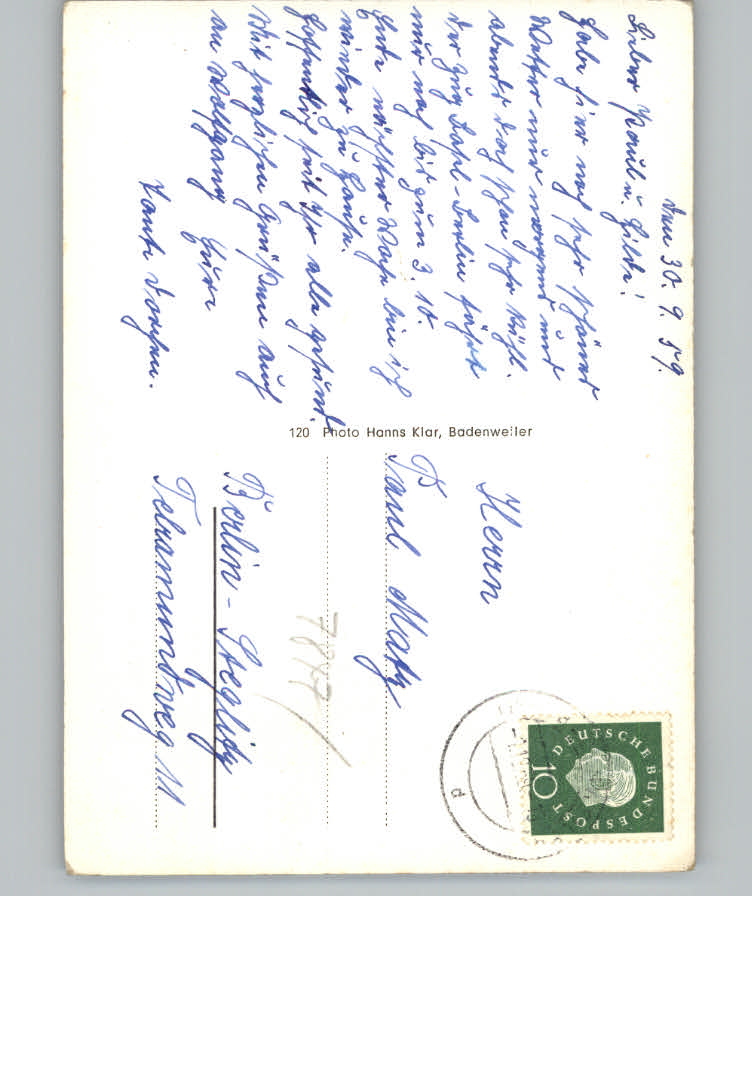 den 30. 9. 59.
Lieber Paul u. Hilde!
Habe hier noch sehr schönes
Wetter nur morgens und
abends doch schon sehr kühl.
Der Zug Basel-Berlin fährt
nur noch bis zum 3. 10.
Ende nächster Woche bin ich
wieder zu Hause.
Hoffentlich seid Ihr alle gesund.
Mit herzlichen Grüßen auch
an Wolfgang Eure
Tante
120 Photo Hanns Klar, Badenweiler
Herrn
Paul Matz
Berlin-Steglitz
Telramundweg 11
DEUTSCHE BUNDESPOST
10